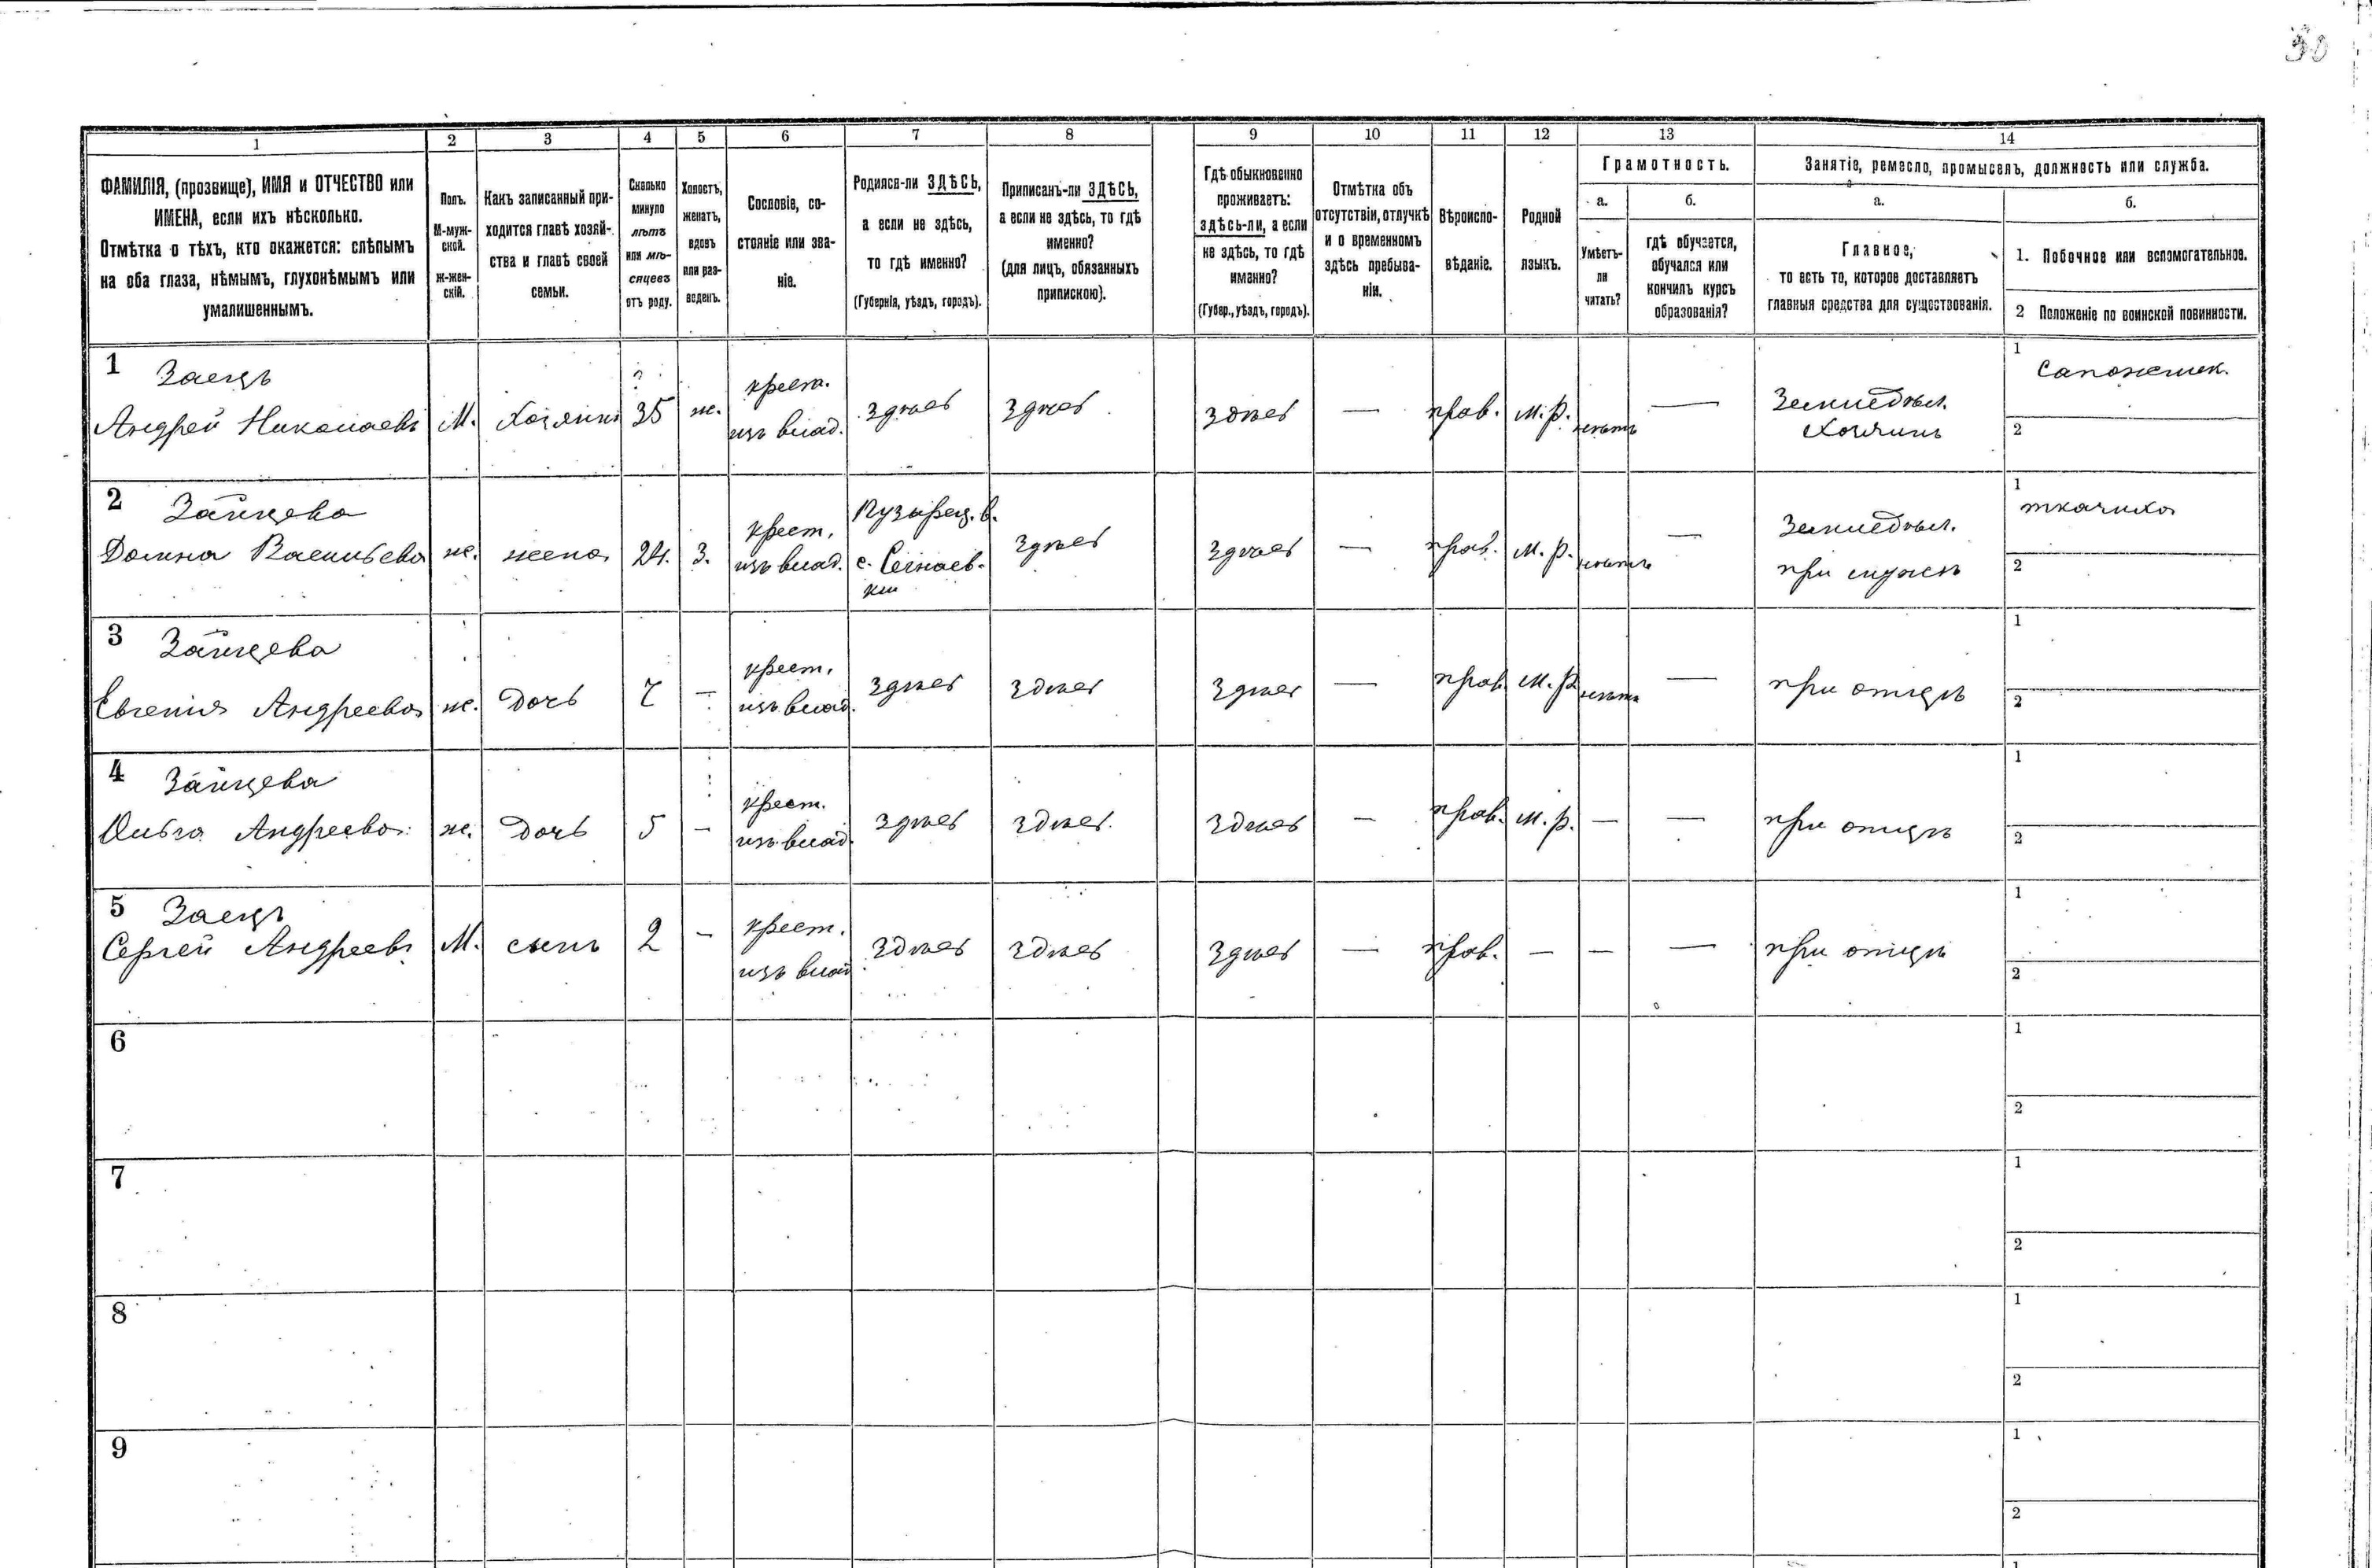 30
1 2 3 4 5 6 7 8 9 10 11 12 13 14
ФАМИЛІЯ, (прозвище), ИМЯ и ОТЧЕСТВО или
ИМЕНА, если ихъ нѣсколько.
Отмѣтка о тѣхъ, кто окажется: слѣпымъ
на оба глаза, нѣмымъ, глухонѣмымъ или
умалишеннымъ.
Полъ.
М-муж-
ской.
ж-жен-
скій.
Какъ записанный при-
ходится главѣ хозяй-
ства и главѣ своей
семьи.
Сколько
минуло
лѣтъ
или мѣ-
сяцевъ
отъ роду.
Холостъ,
женатъ,
вдовъ
или раз-
веденъ.
Сословіе, со-
стояніе или зва-
ніе.
Родился-ли ЗДѢСЬ,
а если не здѣсь,
то гдѣ именно?
(Губернія, уѣздъ, городъ).
Приписанъ-ли ЗДѢСЬ,
а если не здѣсь, то гдѣ
именно?
(для лицъ, обязанныхъ
припискою).
Гдѣ обыкновенно
проживаетъ:
здѣсь-ли, а если
не здѣсь, то гдѣ
именно?
(Губер., уѣздъ, городъ).
Отмѣтка объ
отсутствіи, отлучкѣ
и о временномъ
здѣсь пребыва-
ніи.
Вѣроиспо-
вѣданіе.
Родной
языкъ.
Грамотность.
а.
Умѣетъ-
ли
читать?
б.
гдѣ обучается,
обучался или
кончилъ курсъ
образованія?
Занятіе, ремесло, промыселъ, должность или служба.
а.
Главное,
то есть то, которое доставляетъ
главныя средства для существованія.
б.
1. Побочное или вспомогательное.
2 Положеніе по воинской повинности.
1 Заецъ
Андрей Николаевъ М. Хозяинъ 35 ж.
крест.
изъ влад.
здѣсь здѣсь здѣсь — прав. м.р. нѣтъ —
Земледѣл.
Хозяинъ
1 Сапожник.
2
2 Зайцева
Домна Васильева ж. жена 24. З.
крест.
изъ влад.
Пузырец. в.
с. Сегнаев-
ки
здѣсь здѣсь — прав. м. р. нѣтъ —
Земледѣл.
при мужѣ
1 ткачиха
2
3 Зайцева
Евгенія Андреева ж. Дочь 7 —
крест.
изъ влад.
здѣсь здѣсь здѣсь — прав. м. р. нѣтъ —
при отцѣ
1
2
4 Зайцева
Ольга Андреева ж. Дочь 5 —
крест.
изъ влад.
здѣсь здѣсь здѣсь — прав. м. р. — —
при отцѣ
1
2
5 Заецъ
Сергей Андреевъ М. сынъ 2 —
крест.
изъ влад.
здѣсь здѣсь здѣсь — прав. — — —
при отцѣ
1
2
6
1
2
7
1
2
8
1
2
9
1
2